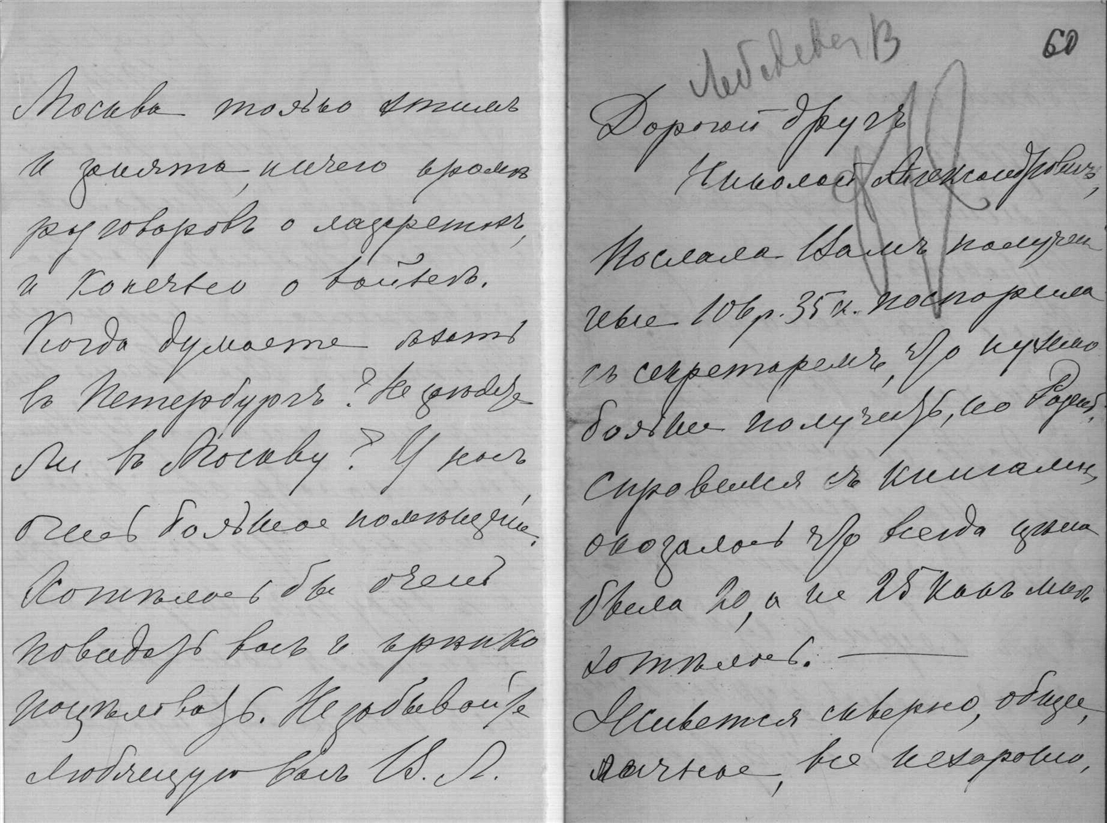 Москва только этимъ
и занята, ничего кромѣ
разговоровъ о лазаретахъ,
и конечно о войнѣ.
Когда думаете ѣхать
въ Петербургъ? Не заѣдете
ли въ Москву? У насъ
очень большое помѣщеніе.
Хотѣлось бы очень
повидать васъ и крѣпко
поцѣловать. Не забывайте
любящую васъ В. Л.
Лебедева В
60
Дорогой другъ
Николай Александровичъ,
Послала Вамъ получен
ные 106 р. 35 к. поспорила
съ секретаремъ, что нужно
больше получить, но
справился съ книгами,
оказалось что всегда цѣна
была 20, а не 25 какъ мнѣ
хотѣлось. —
Живется скверно, общее,
личное, все нехорошо,